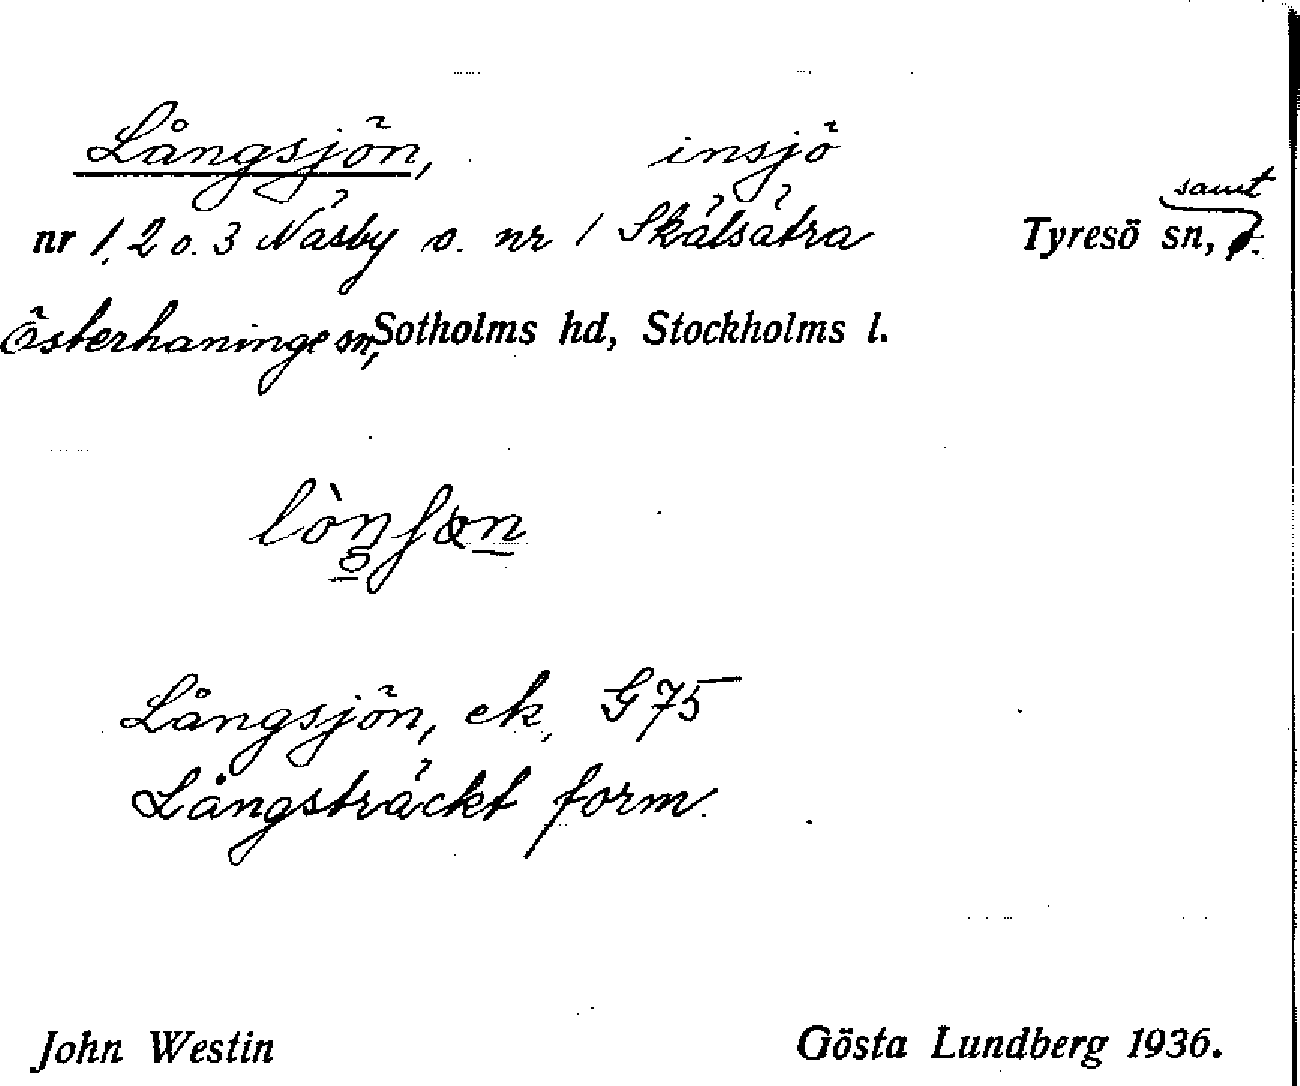 Långsjön, insjö
samt
nr 1, 2 o. 3 Näsby o. nr 1 Skälsätra Tyresö sn,
Österhaninge sn, Sotholms hd, Stockholms l.
Långsjön, ek. G 75
Långsträckt form.
John Westin Gösta Lundberg 1936.